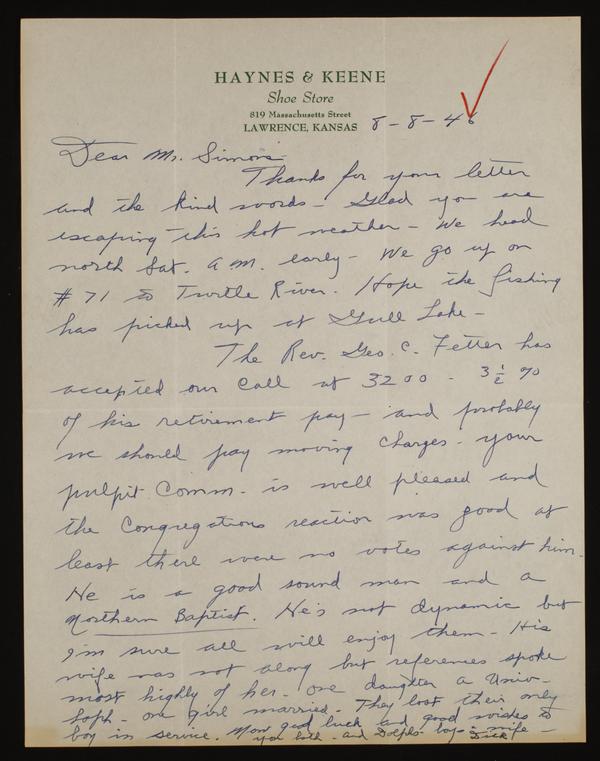 HAYNES & KEENE
Shoe Store
819 Massachusetts Street
LAWRENCE, KANSAS 8-8-46
Dear Mr. Simons
Thanks for your letter
and the kind words - Glad you are
escaping this hot weather - We head
north Sat. A.M. early - We go up on
#71 to Turtle River. Hope the fishing
has picked up at Gull Lake -
The Rev. Geo. C. Fetter has
accepted our Call at 3200 - 3 1/2 %
of his retirement pay - and probably
we should pay moving charges - your
pulpit Comm. is well pleased and
the Congregations reaction was good at
least there were no votes against him.
He is a good sound man and a
Northern Baptist. He's not dynamic but
I'm sure all will enjoy them - His
wife was not along but references spoke
most highly of her - one daughter a Univ -
Soph - one girl married. They lost their only
boy in service. More good luck and good wishes to
you both - and Dolphs boys & wife -
Dick